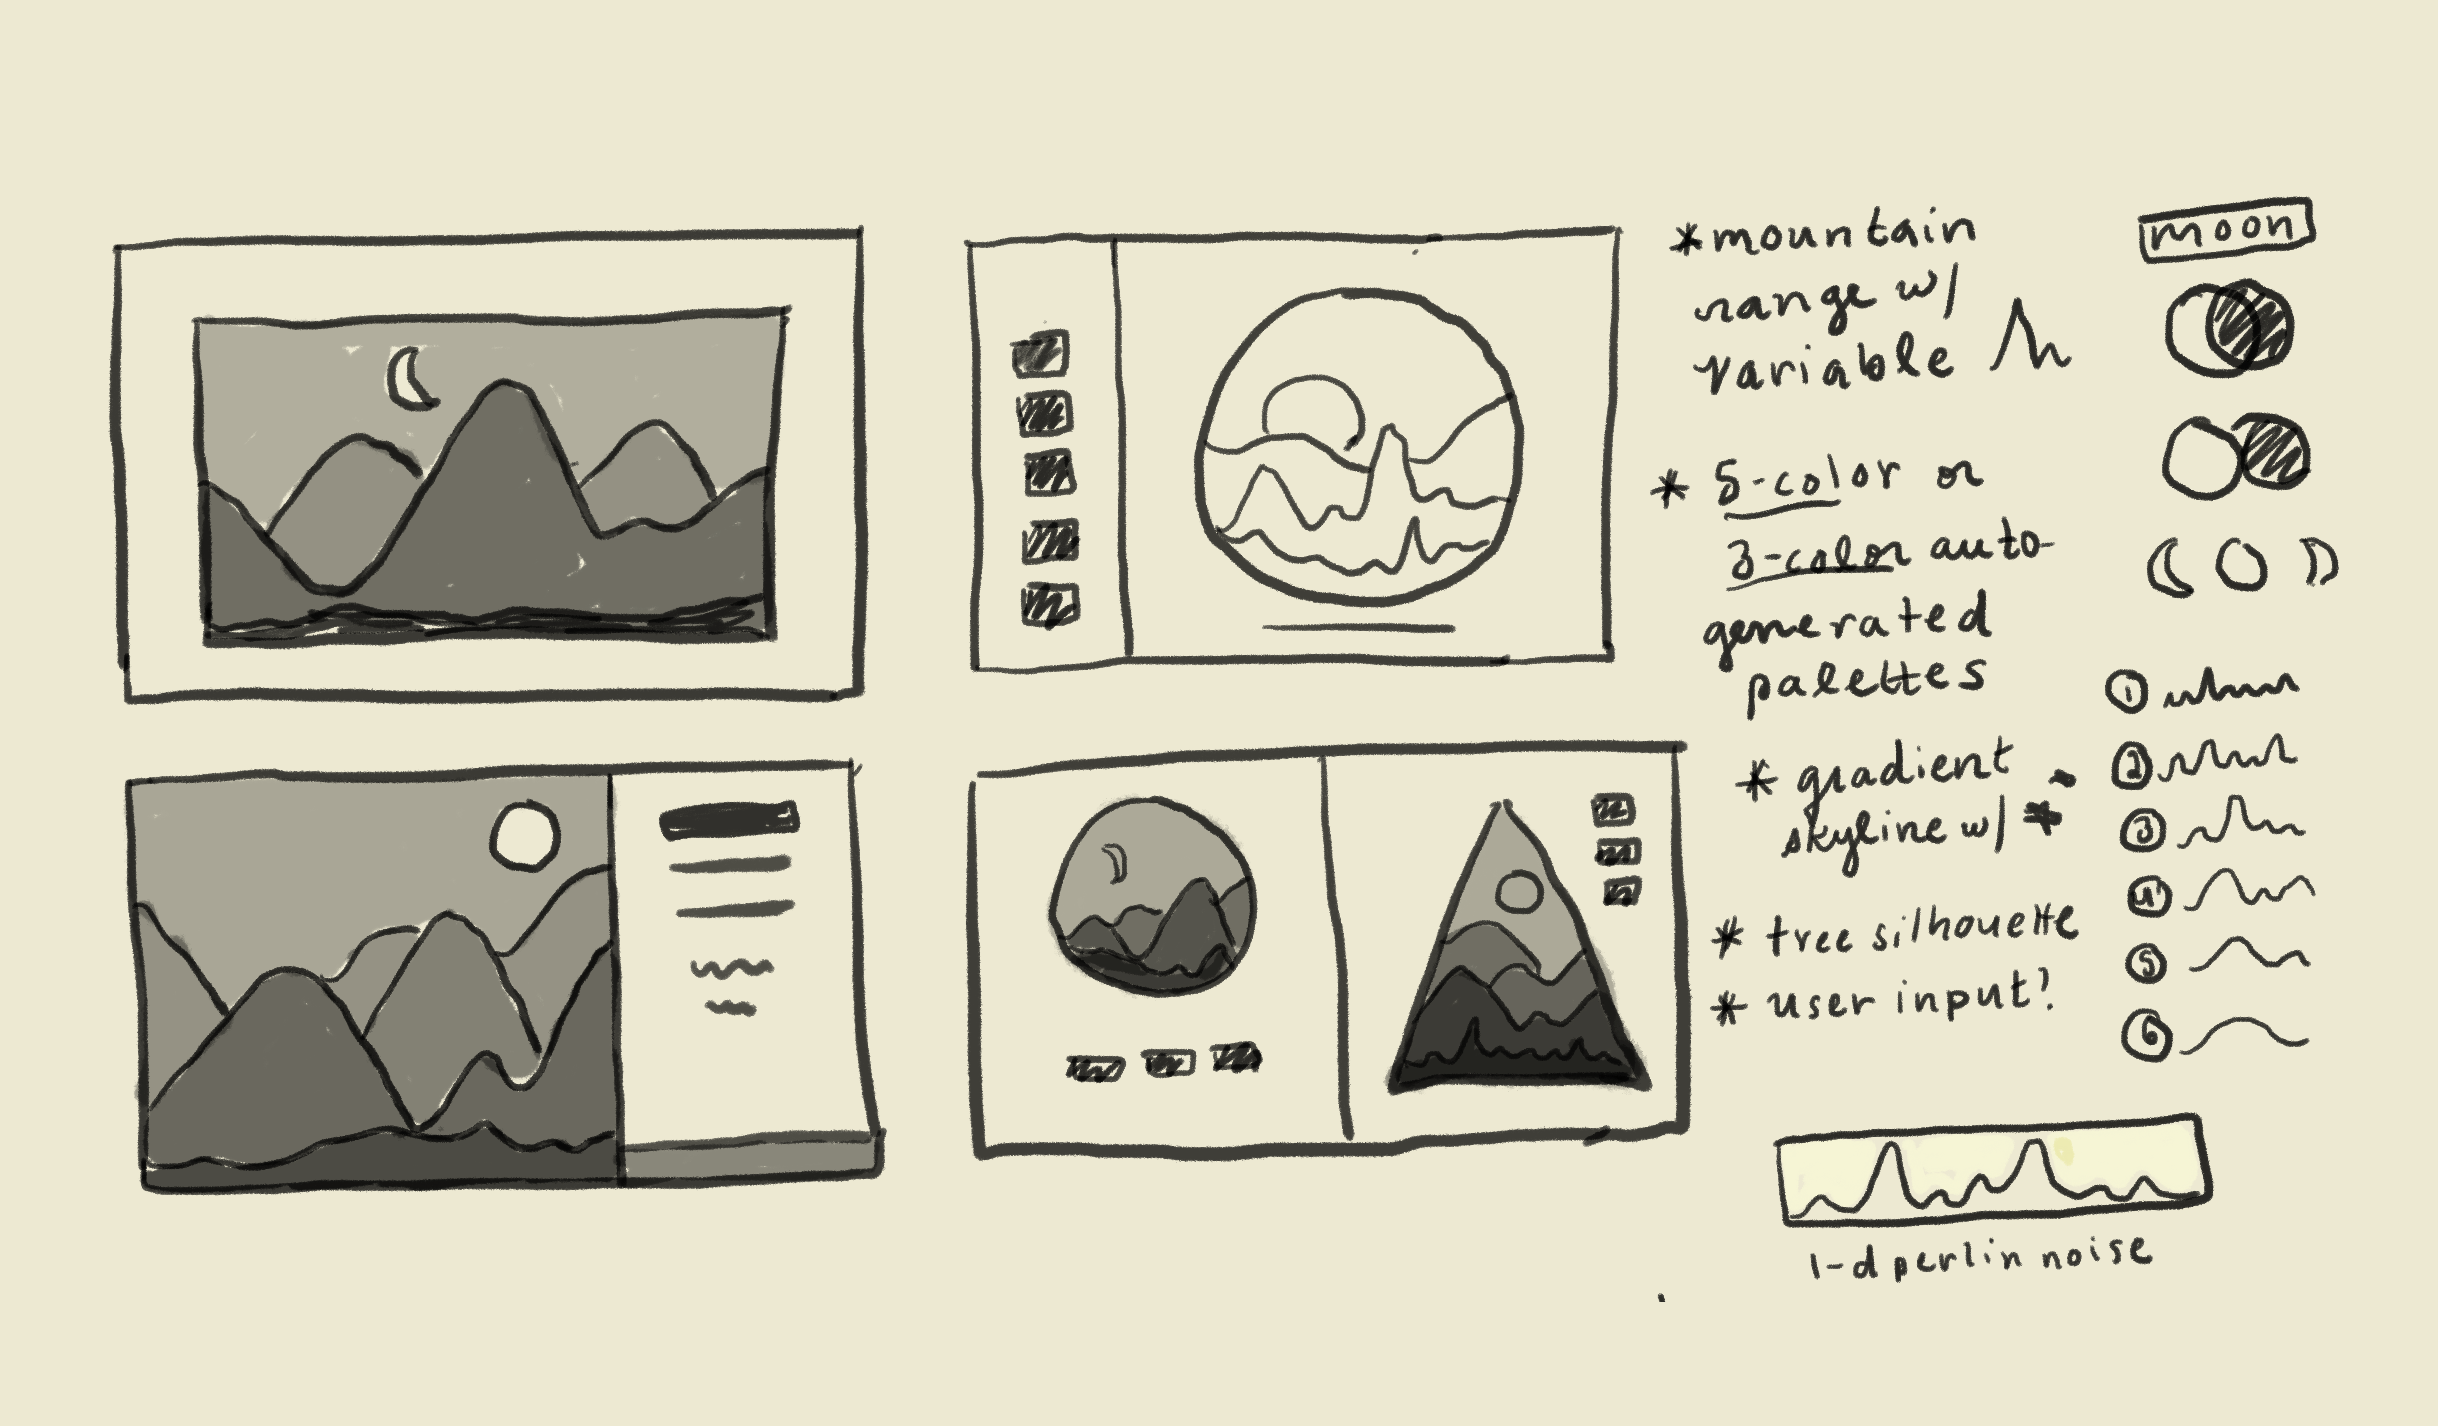 *mountain
range w/
variable
* 5-color or
3-color auto-
generated
palettes
* gradient
skyline w/ *
* tree silhouette
* user input?
moon
1
2
3
4
5
6
1-d perlin noise